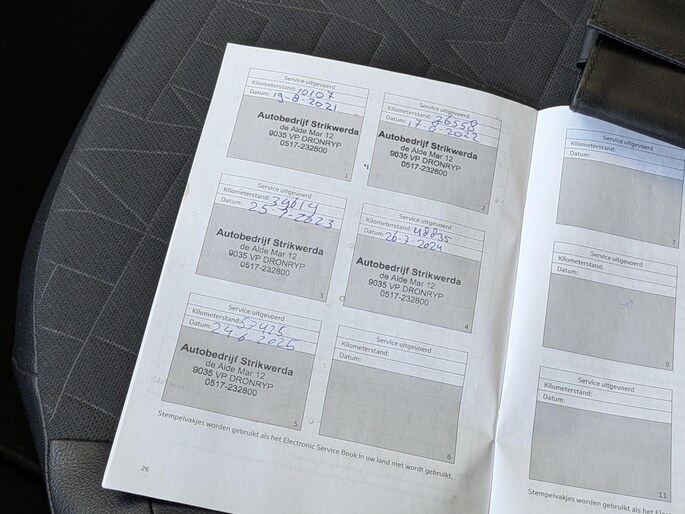 Service uitgevoerd
Kilometerstand: 10107
Datum: 19-8-2021
Autobedrijf Strikwerda
de Alde Mar 12
9035 VP DRONRYP
0517-232800
1
Service uitgevoerd
Kilometerstand: 26558
Datum: 17-8-2022
Autobedrijf Strikwerda
de Alde Mar 12
9035 VP DRONRYP
0517-232800
2
Service uitgevoerd
Kilometerstand: 39614
Datum: 25-7-2023
Autobedrijf Strikwerda
de Alde Mar 12
9035 VP DRONRYP
0517-232800
3
Service uitgevoerd
Kilometerstand: 48835
Datum: 26-7-2024
Autobedrijf Strikwerda
de Alde Mar 12
9035 VP DRONRYP
0517-232800
4
Service uitgevoerd
Kilometerstand: 57425
Datum: 24-6-2025
Autobedrijf Strikwerda
de Alde Mar 12
9035 VP DRONRYP
0517-232800
5
Service uitgevoerd
Kilometerstand:
Datum:
6
Stempelvakjes worden gebruikt als het Electronic Service Book in uw land niet wordt gebruikt.
26
Service uitgevoerd
Kilometerstand:
Datum:
7
Service uitgevoerd
Kilometerstand:
Datum:
9
Service uitgevoerd
Kilometerstand:
Datum:
11
Stempelvakjes worden gebruikt als het Elect